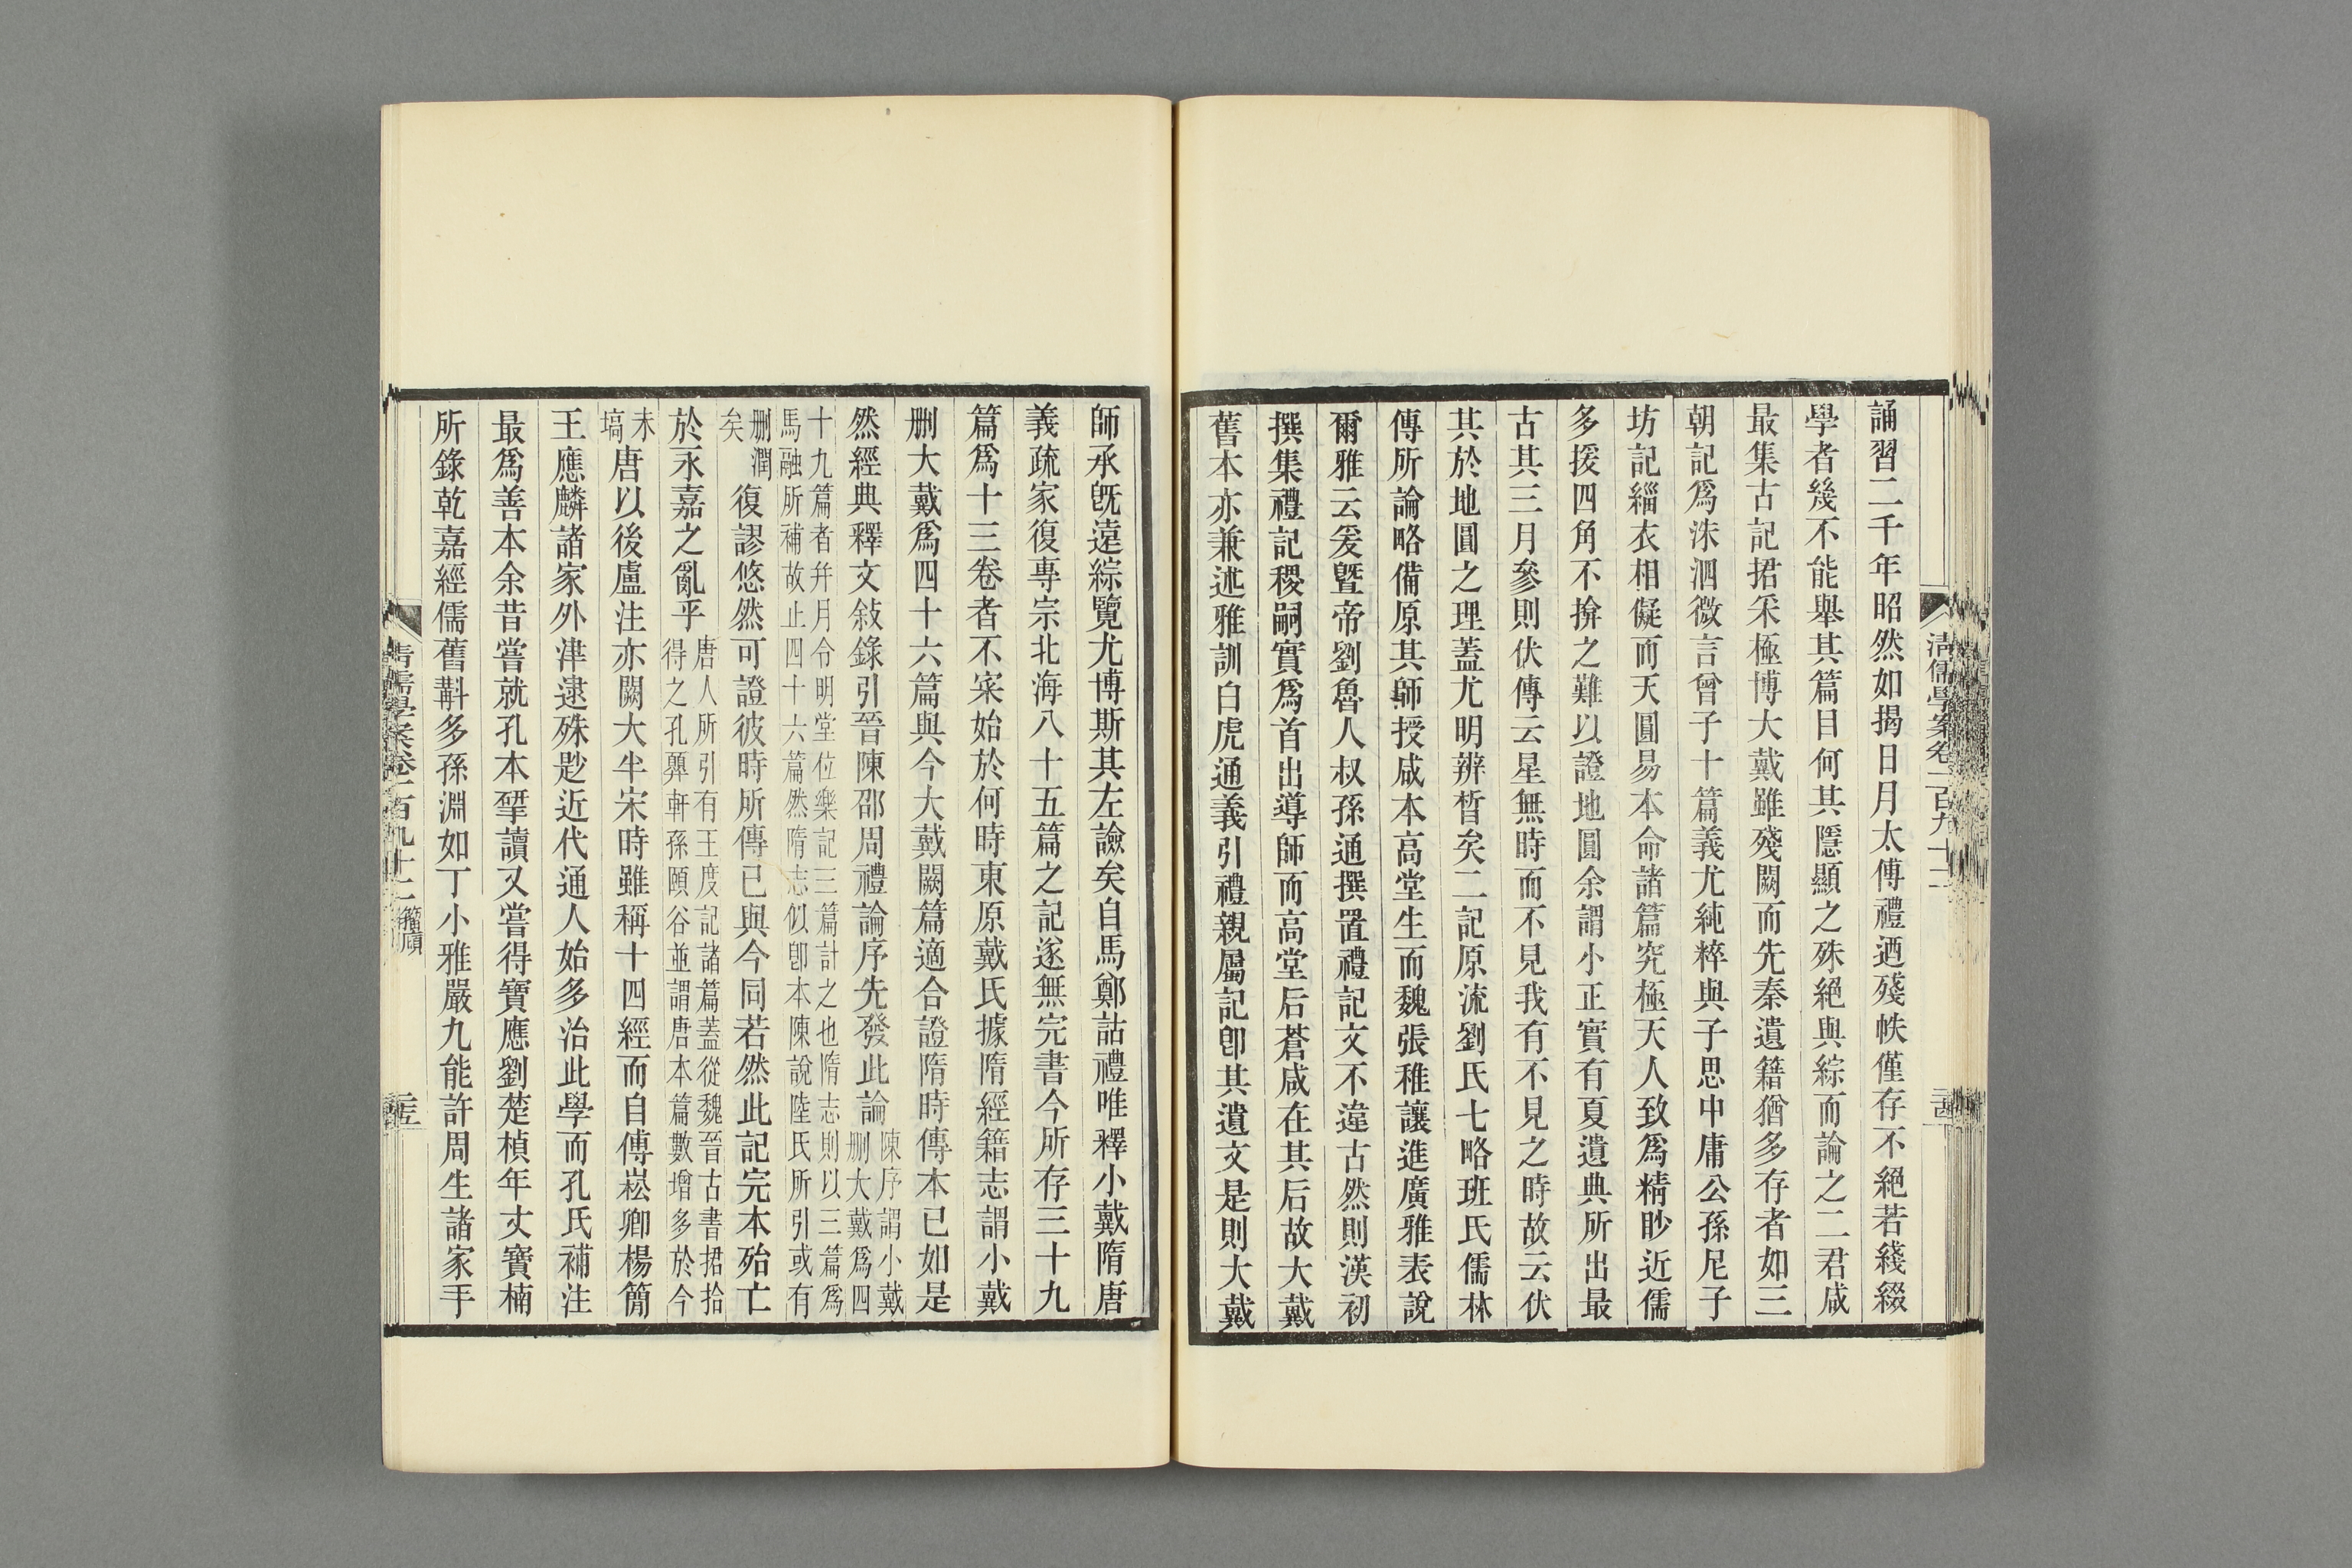 誦習二千年昭然如揭日月太傅禮迺殘帙僅存不絕若綫綴
學者幾不能舉其篇目何其隱顯之殊絕與綜而論之二君咸
最集古記捃采極博大戴雖殘闕而先秦遺籍猶多存者如三
朝記爲洙泗微言曾子十篇義尤純粹與子思中庸公孫尼子
坊記緇衣相儗而天圓易本命諸篇究極天人致爲精眇近儒
多援四角不揜之難以證地圓余謂小正實有夏遺典所出最
古其三月參則伏傳云星無時而不見我有不見之時故云伏
其於地圓之理蓋尤明辨晳矣二記原流劉氏七略班氏儒林
傳所論略備原其師授咸本高堂生而魏張稚讓進廣雅表說
爾雅云爰曁帝劉魯人叔孫通撰置禮記文不違古然則漢初
撰集禮記稷嗣實爲首出導師而高堂后蒼咸在其后故大戴
舊本亦兼述雅訓白虎通義引禮親屬記卽其遺文是則大戴
清儒學案卷一百九十二
師承旣遠綜覽尤博斯其左譣矣自馬鄭詁禮唯釋小戴隋唐
義疏家復專宗北海八十五篇之記遂無完書今所存三十九
篇爲十三卷者不寀始於何時東原戴氏據隋經籍志謂小戴
删大戴爲四十六篇與今大戴闕篇適合證隋時傳本已如是
然經典釋文敍錄引晉陳邵周禮論序先發此論陳序謂小戴
删大戴爲四
十九篇者幷月令明堂位樂記三篇計之也隋志則以三篇爲
馬融所補故止四十六篇然隋志似卽本陳說陸氏所引或有
删潤
矣
復謬悠然可證彼時所傳已與今同若然此記完本殆亡
於永嘉之亂乎唐人所引有王度記諸篇蓋從魏晉古書捃拾
得之孔㢲軒孫頤谷並謂唐本篇數增多於今
未
塙
唐以後盧注亦闕大半宋時雖稱十四經而自傅崧卿楊簡
王應麟諸家外津逮殊尟近代通人始多治此學而孔氏補注
最爲善本余昔嘗就孔本揅讀又嘗得寶應劉楚楨年丈寶楠
所錄乾嘉經儒舊斠多孫淵如丁小雅嚴九能許周生諸家手
清儒學案卷一百九十二 籀廎
二十五